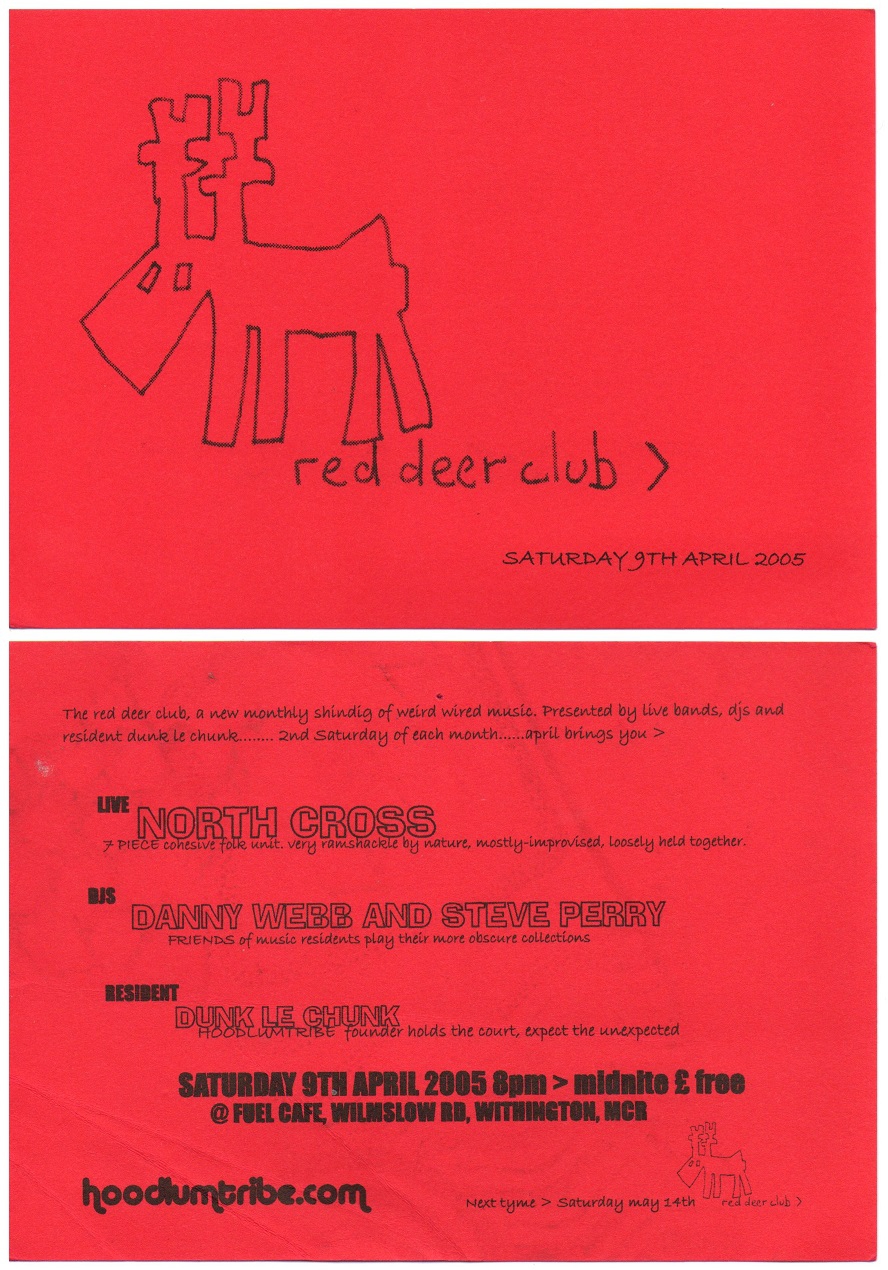 red deer club >
SATURDAY 9TH APRIL 2005
The red deer club, a new monthly shindig of weird wired music. Presented by live bands, djs and
resident dunk le chunk........ 2nd Saturday of each month......april brings you >
LIVE
NORTH CROSS
7 PIECE cohesive folk unit. very ramshackle by nature, mostly-improvised, loosely held together.
DJS
DANNY WEBB AND STEVE PERRY
FRIENDS of music residents play their more obscure collections
RESIDENT
DUNK LE CHUNK
HOODLUMTRIBE founder holds the court, expect the unexpected
SATURDAY 9TH APRIL 2005 8pm > midnite £ free
@ FUEL CAFE, WILMSLOW RD, WITHINGTON, MCR
hoodlumtribe.com
Next tyme > Saturday may 14th
red deer club >